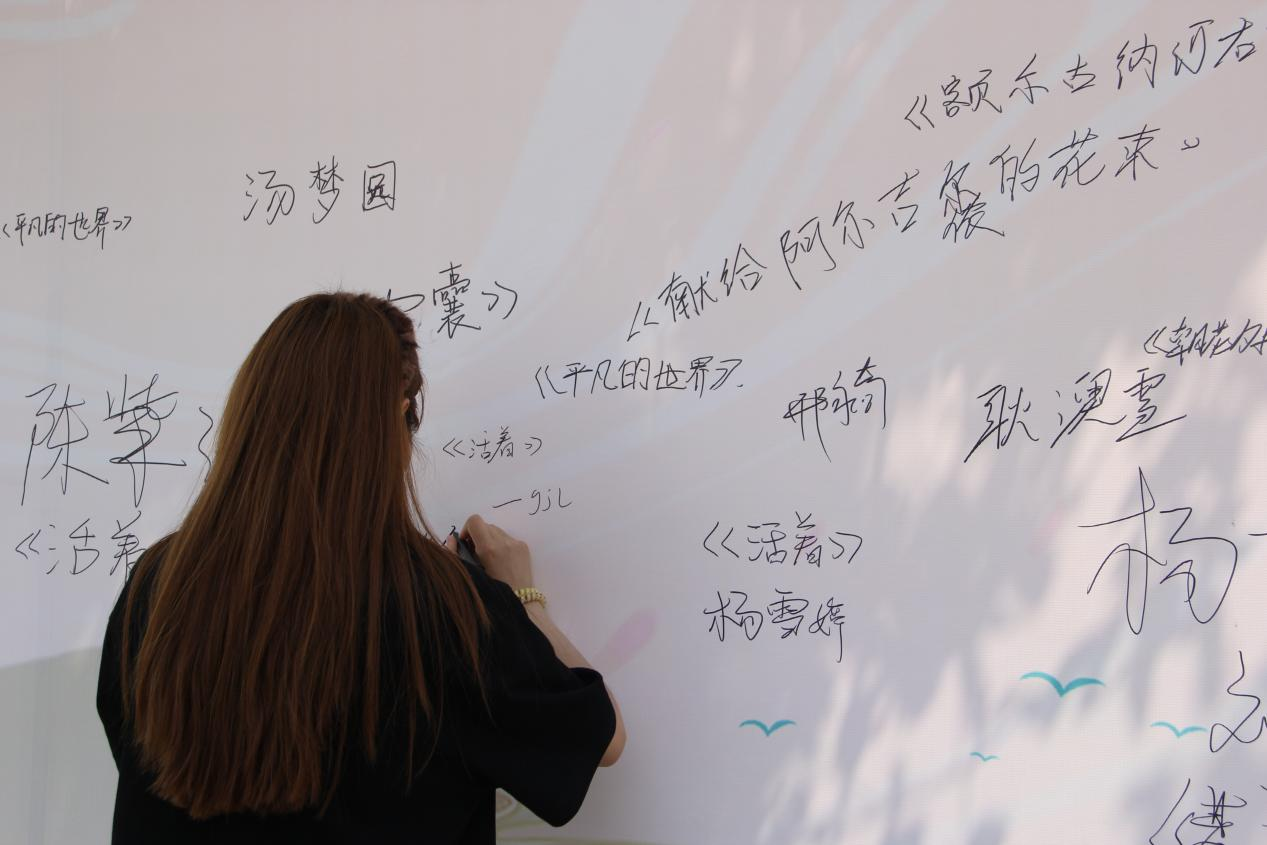 《额尔古纳河右
《献给阿尔吉侬的花束。
汤梦圆
《平凡的世界》
囊》
《平凡的世界》.
邢永琦
耿澳雪
《朝花夕拾
陈紫
《活着》
—gjL
《活着
《活着》
杨雪婷
杨